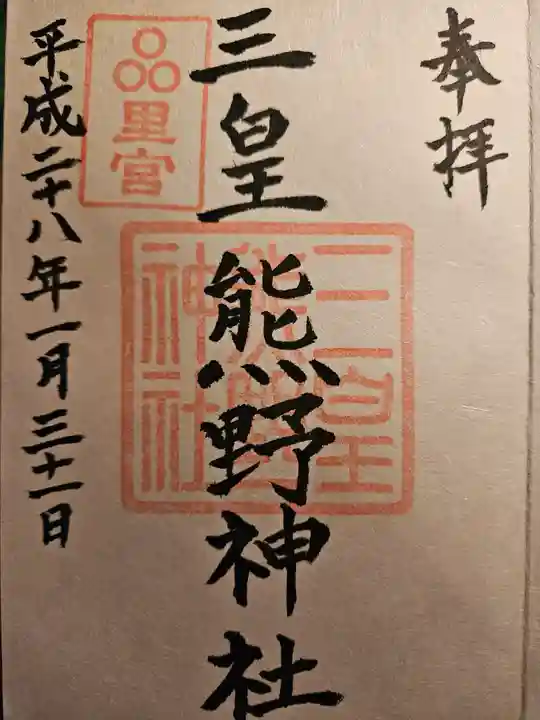 奉拝
三皇熊野神社
三皇熊野神社
里宮
平成二十八年一月三十一日